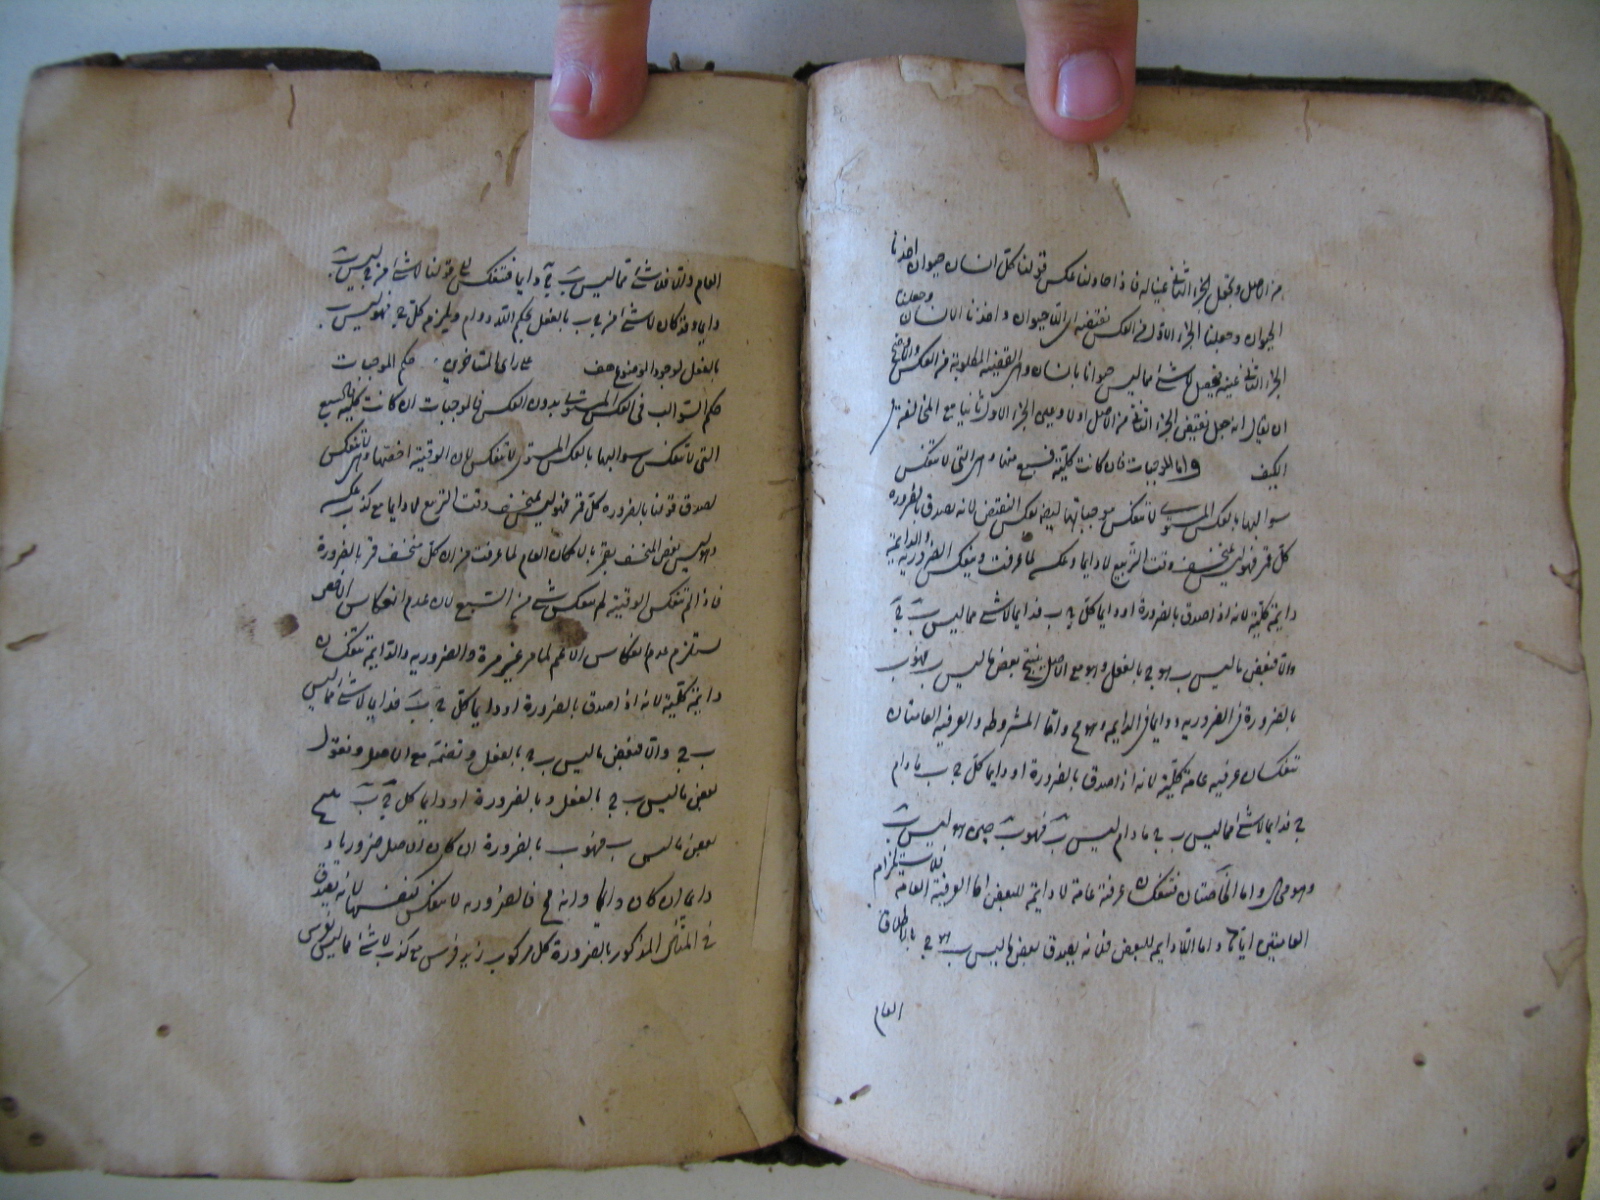 من الاصل ونجعل الجزء الثاني عينا له فاذا حاولنا عكس قولنا كل انسان حيوان اخذنا
الحيوان وجعلنا الجزء الاول من العكس نقيضه اى اللاحيوان واخذنا الانسان وجعلنا
الجزء الثاني عينه فيحصل لا شئ مما ليس حيوانا بانسان وهى القضية المطلوبة من العكس والاوضح
ان يقال انه جعل نقيض الجزء الثاني من الاصل اولا وعين الجزء الاول ثانيا مع المخالفة فى
الكيف واما الموجبات فان كانت كلية فسبع منها وهى التى لا تنعكس
سوالبها بالعكس المستوى لا تنعكس موجباتها بعكس النقيض لانه يصدق بالضرورة
كل قمر فهو ليس بمنخسف وقت التربيع لا دايما دون عكسه لما عرفت وينعكس الضرورية والدايمة
دايمة كلية لانه اذا صدق بالضرورة او دايما كل ج ب فدايما لا شئ مما ليس ب ج
والا فبعض ما ليس ب هو ج بالفعل وهو مع الاصل ينتج بعض ما ليس ب فهو ب
بالضرورة فى الضرورية ودايما فى الدايمة وهو مح واما المشروطة والعرفية العامتان
تنعكسان عرفية عامة كلية لانه اذا صدق بالضرورة او دايما كل ج ب ما دام
ج فدايما لا شئ مما ليس ب ج ما دام ليس ب فهو ب حين هو ليس ب
وهو محال واما الخاصتان فتنعكسان عرفية عامة لا دايمة للبعض اما العرفية العامة فلاستلزام
العامتين اياها واما اللادايمة للبعض فلانه يصدق بعض ما ليس ب هو ج بالاطلاق
العام
العام والا فلا شئ مما ليس ب ج دايما فتنعكس الى قولنا لا شئ من ج ليس ب
دايما وقد كان لا شئ من ج ب بالفعل بحكم اللادوام ويلزم كل ج فهو ليس ب
بالفعل لوجود الموضوع هف على راى المتاخرين حكم الموجبات
حكم السوالب فى العكس المستوى بدون العكس فالموجبات ان كانت كلية فالسبع
التى لا تنعكس سوالبها بالعكس المستوى لا تنعكس لان الوقتية اخصها وهى لا تنعكس
لصدق قولنا بالضرورة كل قمر فهو ليس بمنخسف وقت التربيع لا دايما مع كذب عكسه
وهو ليس بعض المنخسف بقمر بالامكان العام لما عرفت من ان كل منخسف قمر بالضرورة
فاذا لم تنعكس الوقتية لم تنعكس شئ من السبع لان عدم انعكاس الاخص
يستلزم عدم انعكاس الاعم لما مر غير مرة والضرورية والدايمة تنعكسان
دايمة كلية لانه اذا صدق بالضرورة او دايما كل ج ب فدايما لا شئ مما ليس
ب ج والا فبعض ما ليس ب ج بالفعل ونضمه مع الاصل ونقول
بعض ما ليس ب ج بالفعل وبالضرورة او دايما كل ج ب ينتج
بعض ما ليس ب فهو ب بالضرورة ان كان الاصل ضروريا و
دايما ان كان دايما وانه مح فالضرورية لا تنعكس كنفسها لانه يصدق
فى المثال المذكور بالضرورة كل مركوب زيد فرس مع كذب لا شئ مما ليس بفرس